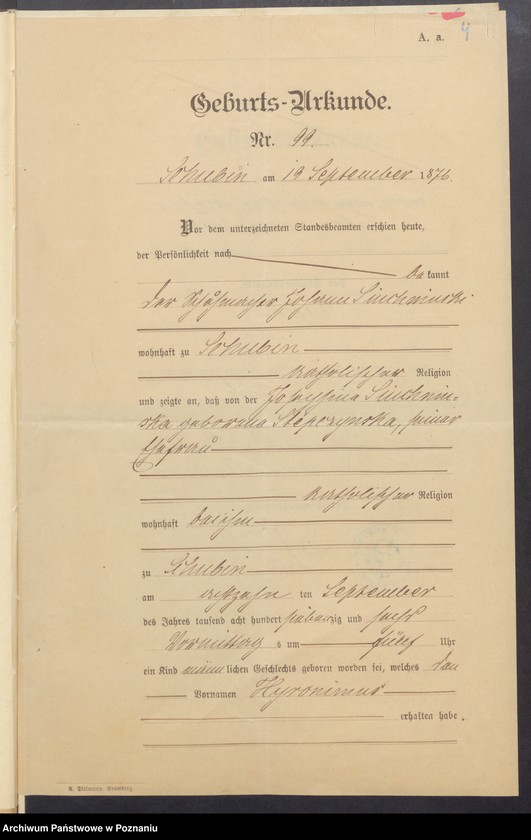 A. a.
4
Geburts-Urkunde.
Nr. 99.
Schubin am 19 September 1876.
Vor dem unterzeichneten Standesbeamten erschien heute,
der Persönlichkeit nach
be kannt
der Schuhmacher Johann
wohnhaft zu Schubin
katholischer Religion
und zeigte an, daß von der Josephina
ska geborene Stepczynska, seiner
Ehefrau
katholischer Religion
wohnhaft bei ihm
zu Schubin
am achtzehn ten September
des Jahres tausend acht hundert siebenzig und sechs
Vormittag s um fünf Uhr
ein Kind männ lichen Geschlechts geboren worden sei, welches den
Vornamen Hyronimus
erhalten habe.
Archiwum Państwowe w Poznaniu